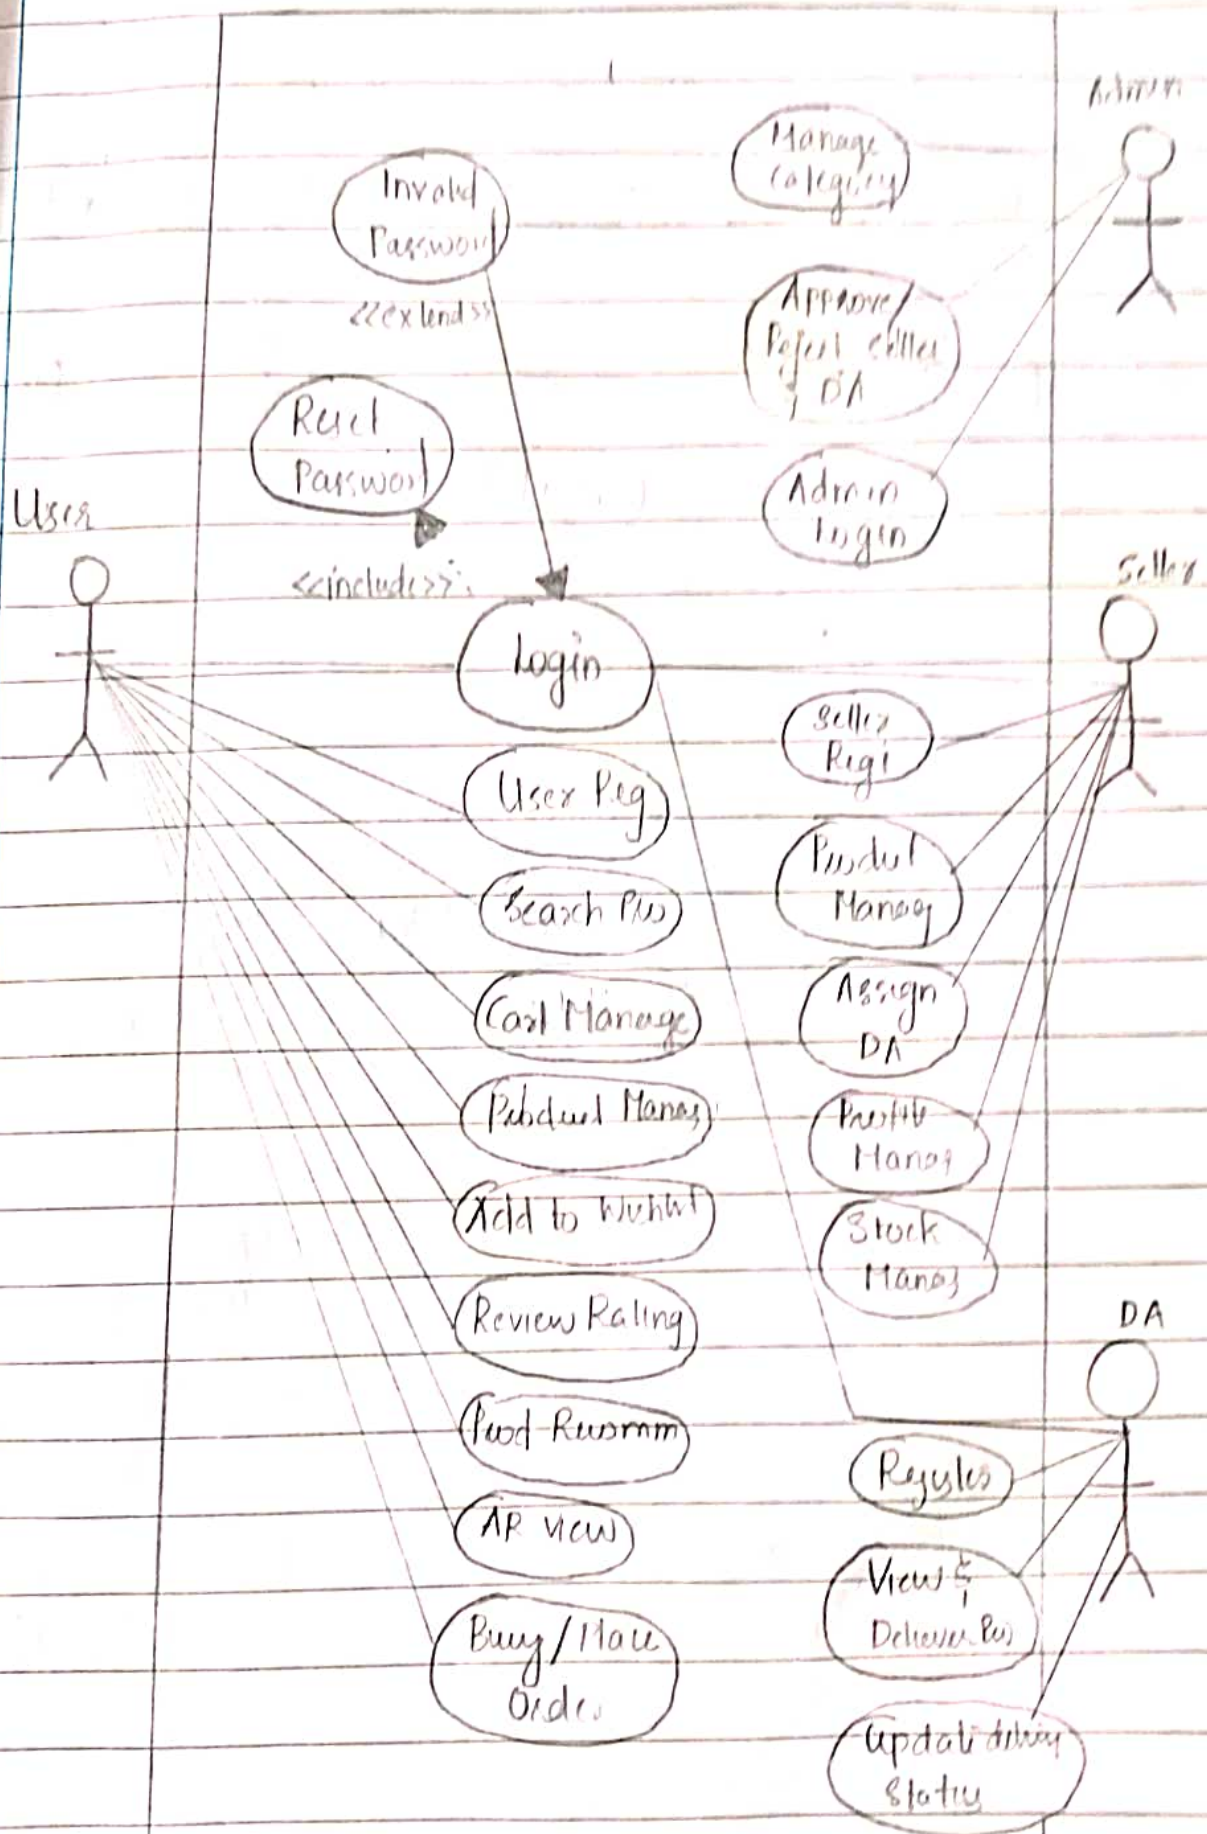 Admin
Manage
Category
Invalid
Password
<<extend>>
Approve/
Reject Seller
& DA
Reset
Password
Admin
Login
User
<<include>>
Seller
Login
Seller
Regi
User Reg
Search Pro
Product
Manag
Cart Manage
Assign
DA
Product Manag
Profile
Manag
Add to Wishlist
Stock
Manag
Review Rating
DA
Prod Recomm
Register
AR View
View &
Deliever Pro
Buy/Place
Order
Update delivery
Status